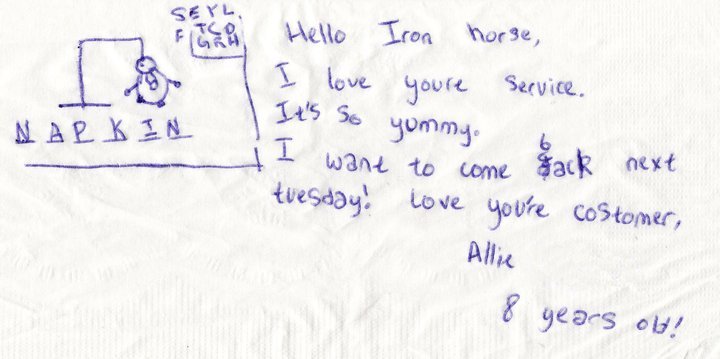 SEYL
F TCO
GRH
NAPKIN
Hello Iron horse,
I love youre service.
It's so yummy.
I want to come back next
tuesday! Love you're costomer,
Allie
8 years old!